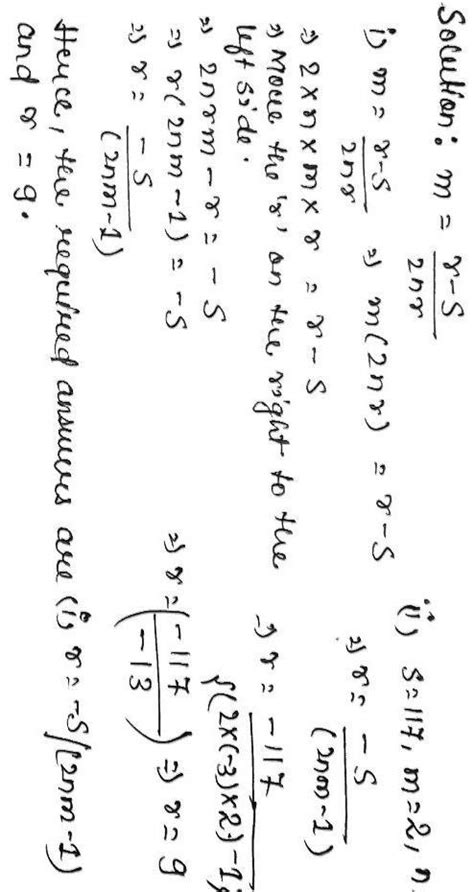 Solution: m = r-s/2nr
i) m = r-s/2nr ⇒ m(2nr) = r-s
⇒ 2×n×m×r = r-s
⇒ Move the 'r' on the right to the
left side.
⇒ 2nrm-r = -s
⇒ r(2nm-1) = -s
⇒ r = -s/(2nm-1)
ii) s=117, m=2, n
⇒ r = -s/(2nm-1)
⇒ r = -117/{(2×(-3)×2)-1}
⇒ r = (-117/-13) ⇒ r = 9
Hence, the required answers are (i) r = -s/(2nm-1)
and r = 9.